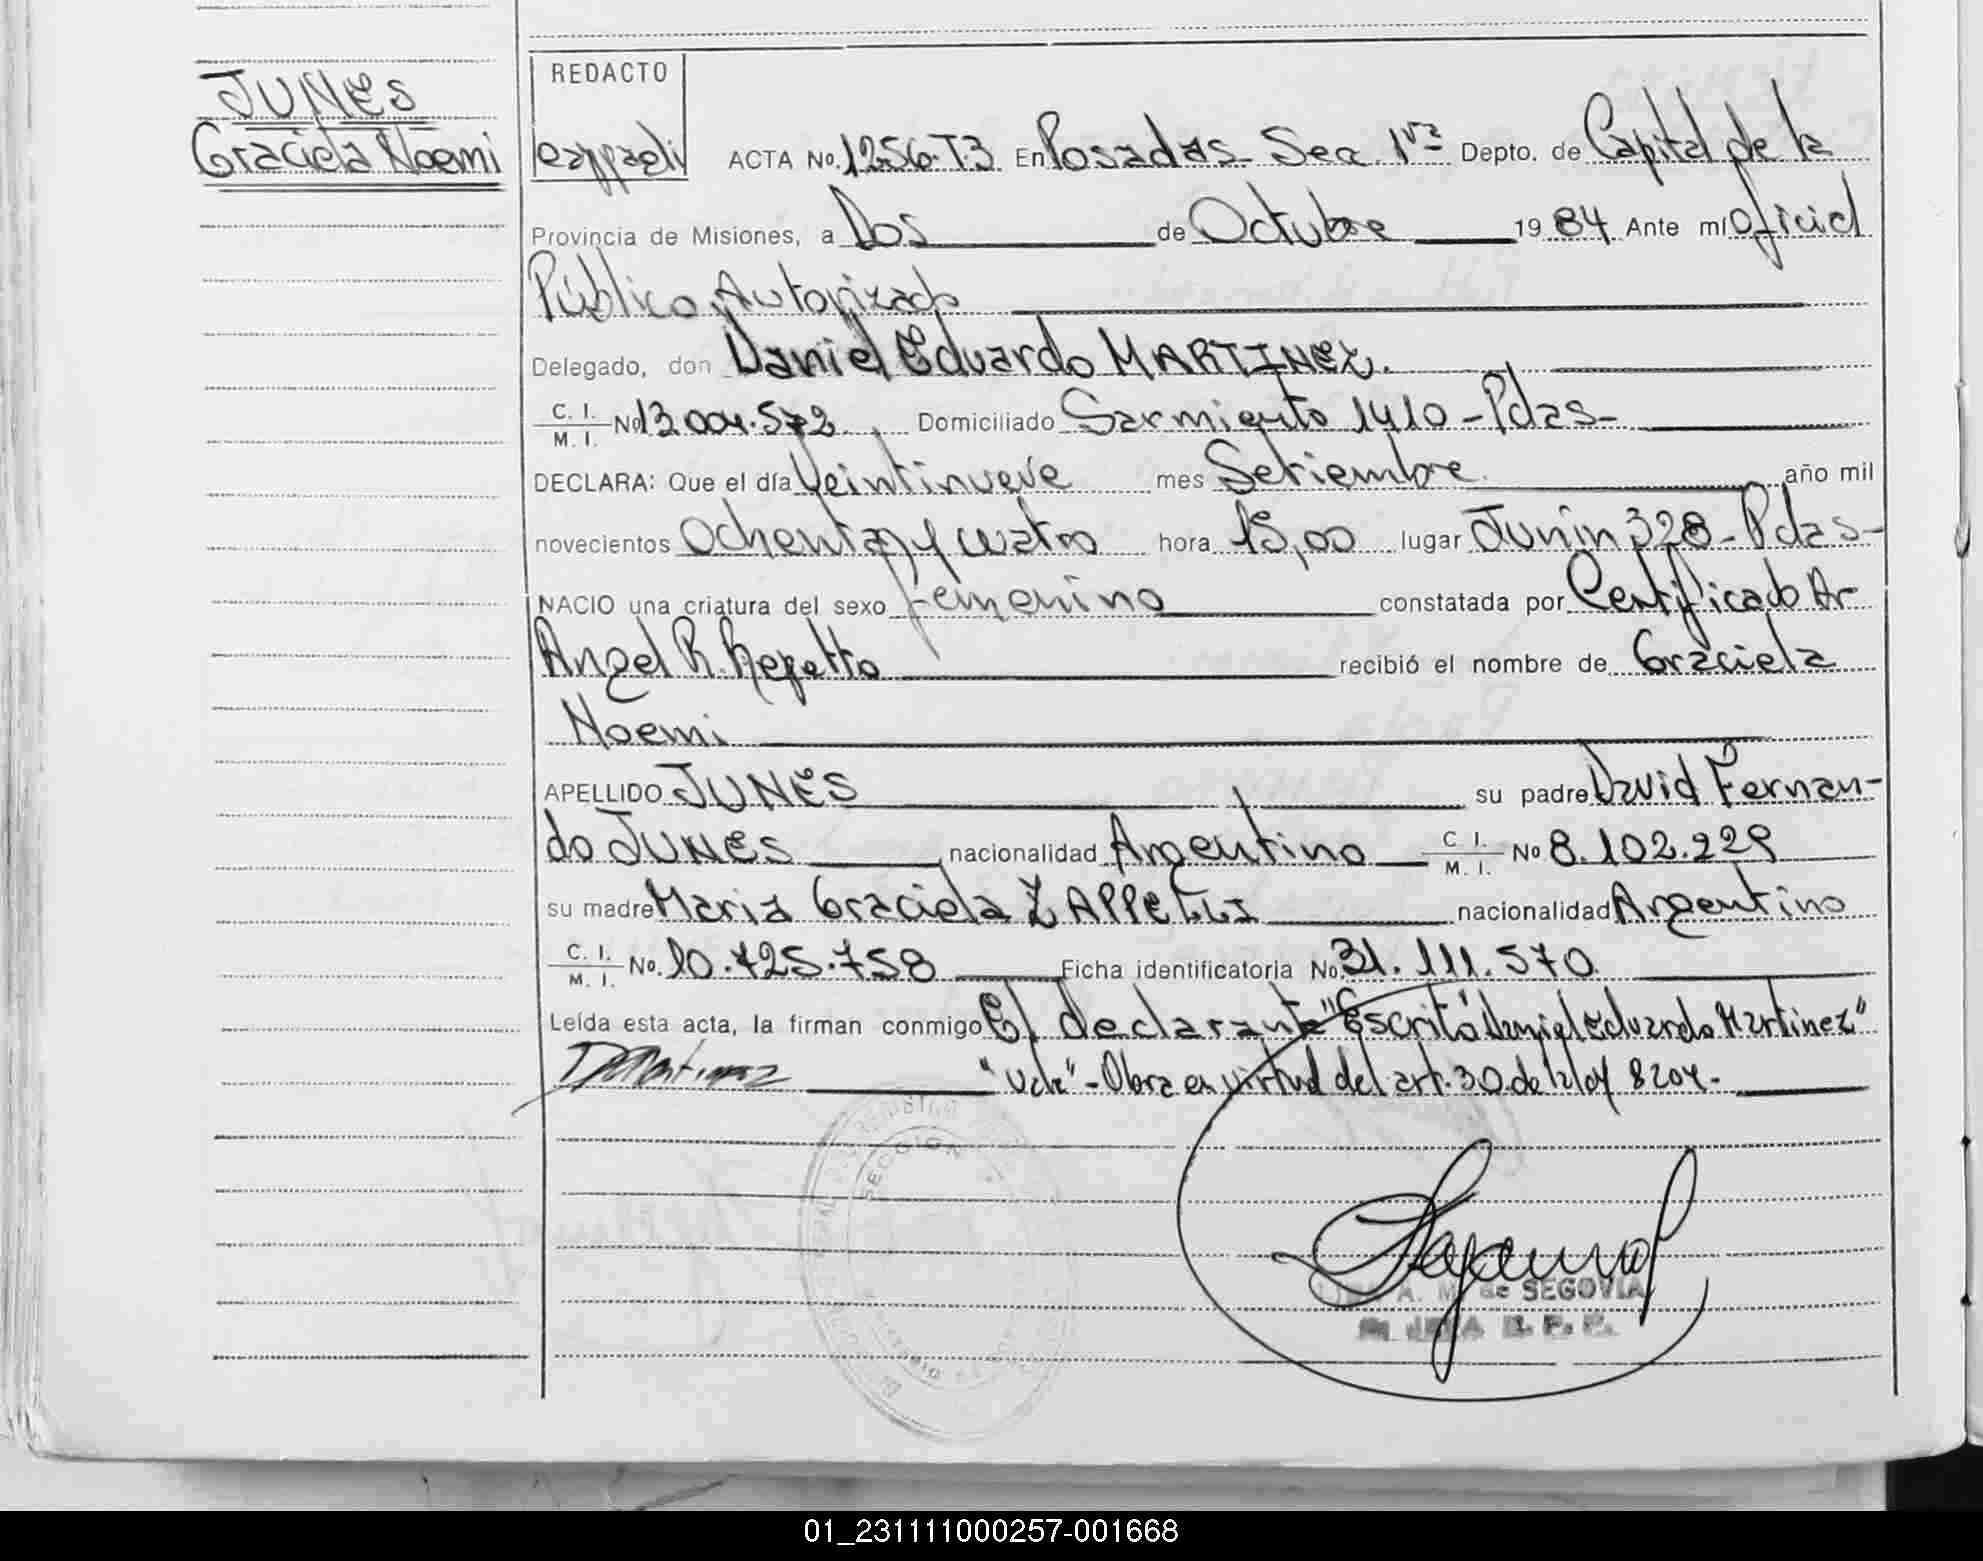 JUNES
Graciela Noemi
REDACTO
ACTA No. 1256-T.3 En Posadas Sec. 1ra Depto. de Capital de la
Provincia de Misiones, a Dos de Octubre 1984 Ante mí Oficial
Público Autorizado
Delegado, don Daniel Eduardo MARTINEZ.
C. I. M. I. No 13.004.572 Domiciliado Sarmiento 1410 - Pdas-
DECLARA: Que el día Veintinueve mes Setiembre año mil
novecientos Ochenta y cuatro hora 15,00 lugar Junin 328 - Pdas-
NACIO una criatura del sexo femenino constatada por Certificado Dr
Angel R. Repetto recibió el nombre de Graciela
Noemi
APELLIDO JUNES su padre David Fernan-
do JUNES nacionalidad Argentino C. I. M. I. No 8.102.229
su madre Maria Graciela ZAPPELLI nacionalidad Argentino
C. I. M. I. No. 10.725.758 Ficha identificatoria No. 31.111.570
Leída esta acta, la firman conmigo El declarante "Escrito" Daniel Eduardo Martinez"
DMartinez "Vale" - Obra en virtud del art. 30 de la ley 8204.-
SECCION
A. M. de SEGOVIA
01_231111000257-001668